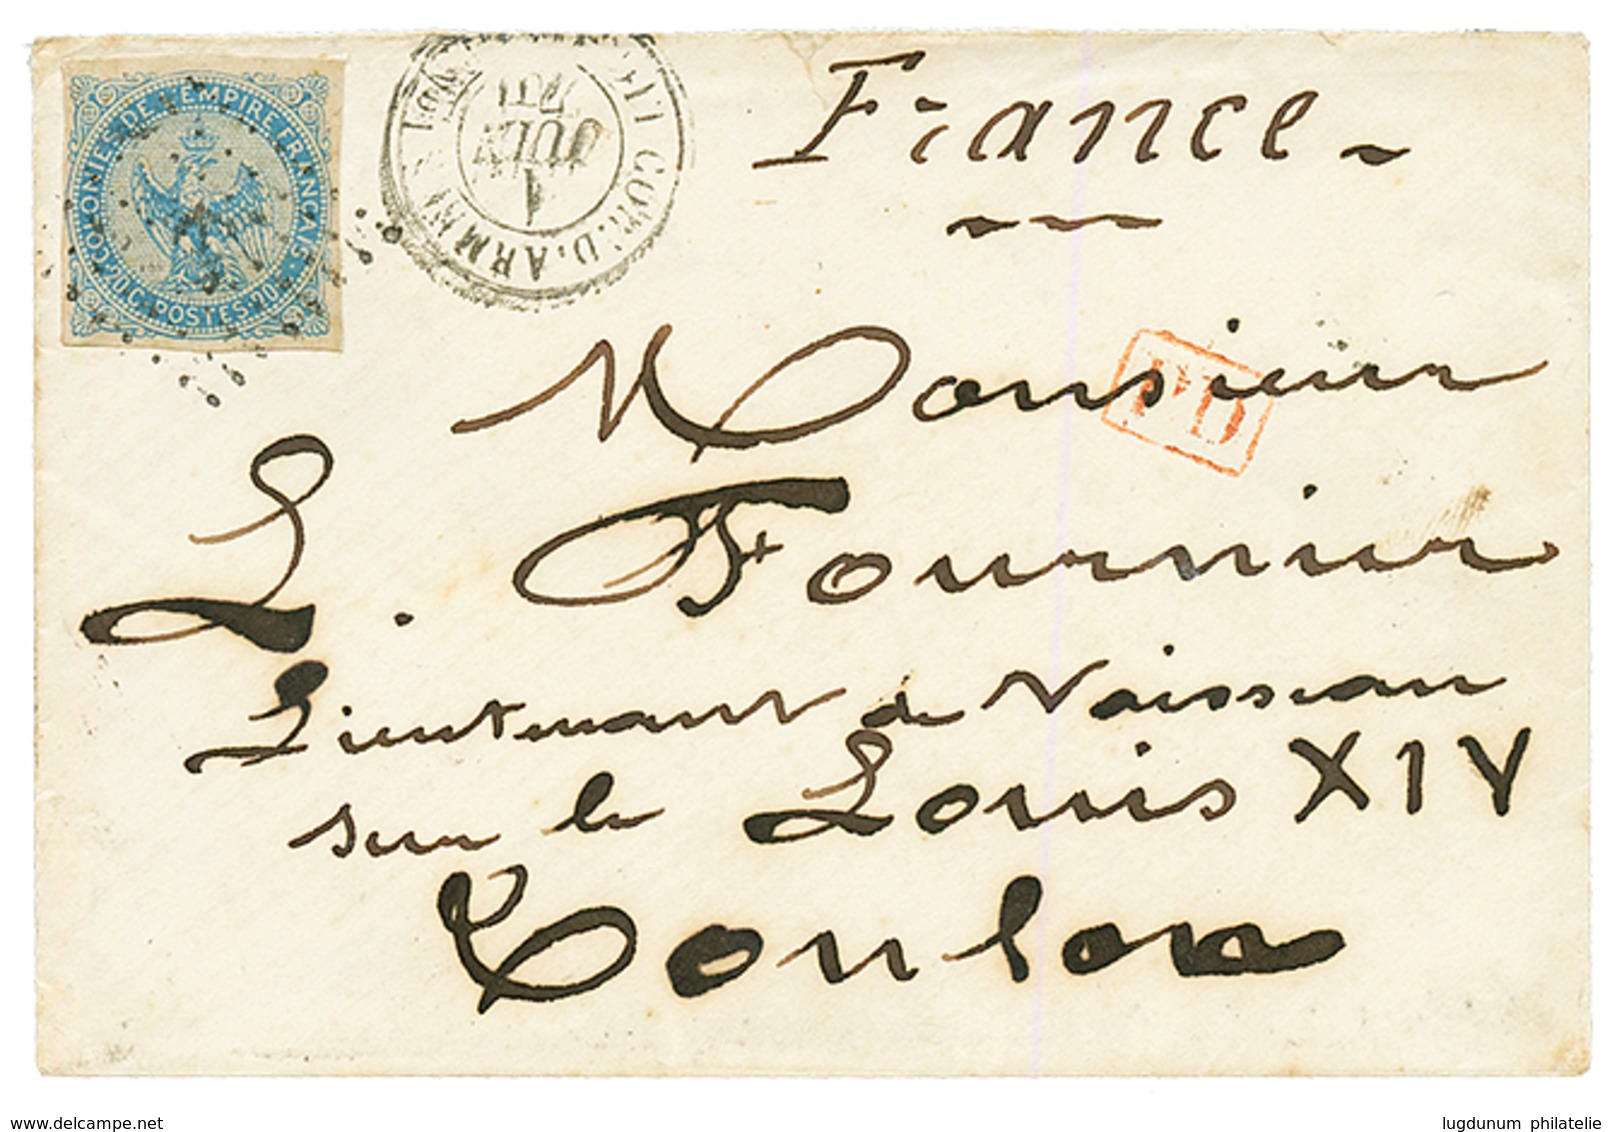 COLONIES DE L'EMPIRE FRANÇAIS
20 C. POSTES. 20
COR. D. ARM
1
JUIN
France
PD
Monsieur
L. Fournier
Lieutenant de Vaisseau
sur le Louis XIV
Toulon
delcampe.net
lugdunum philatelie